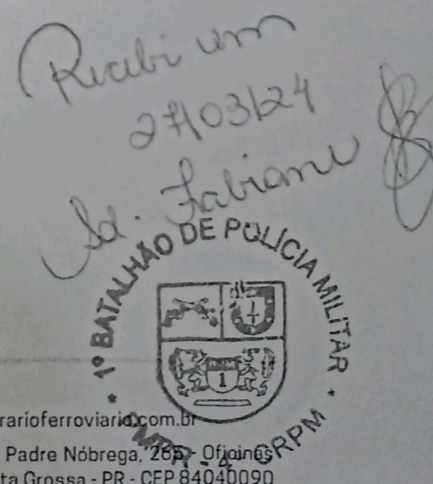 Recebi em
27/03/24
Sd. Fabiane
1º BATALHÃO DE POLÍCIA MILITAR
1
PMPR - 4º CRPM
rarioferroviario.com.br
Padre Nóbrega, 265 - Oficinas
ta Grossa - PR - CEP 84040090